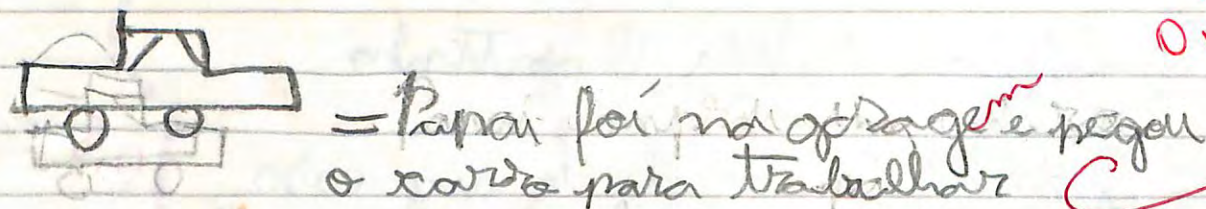 = Papai foi na garage e pegou
o carro para trabalhar